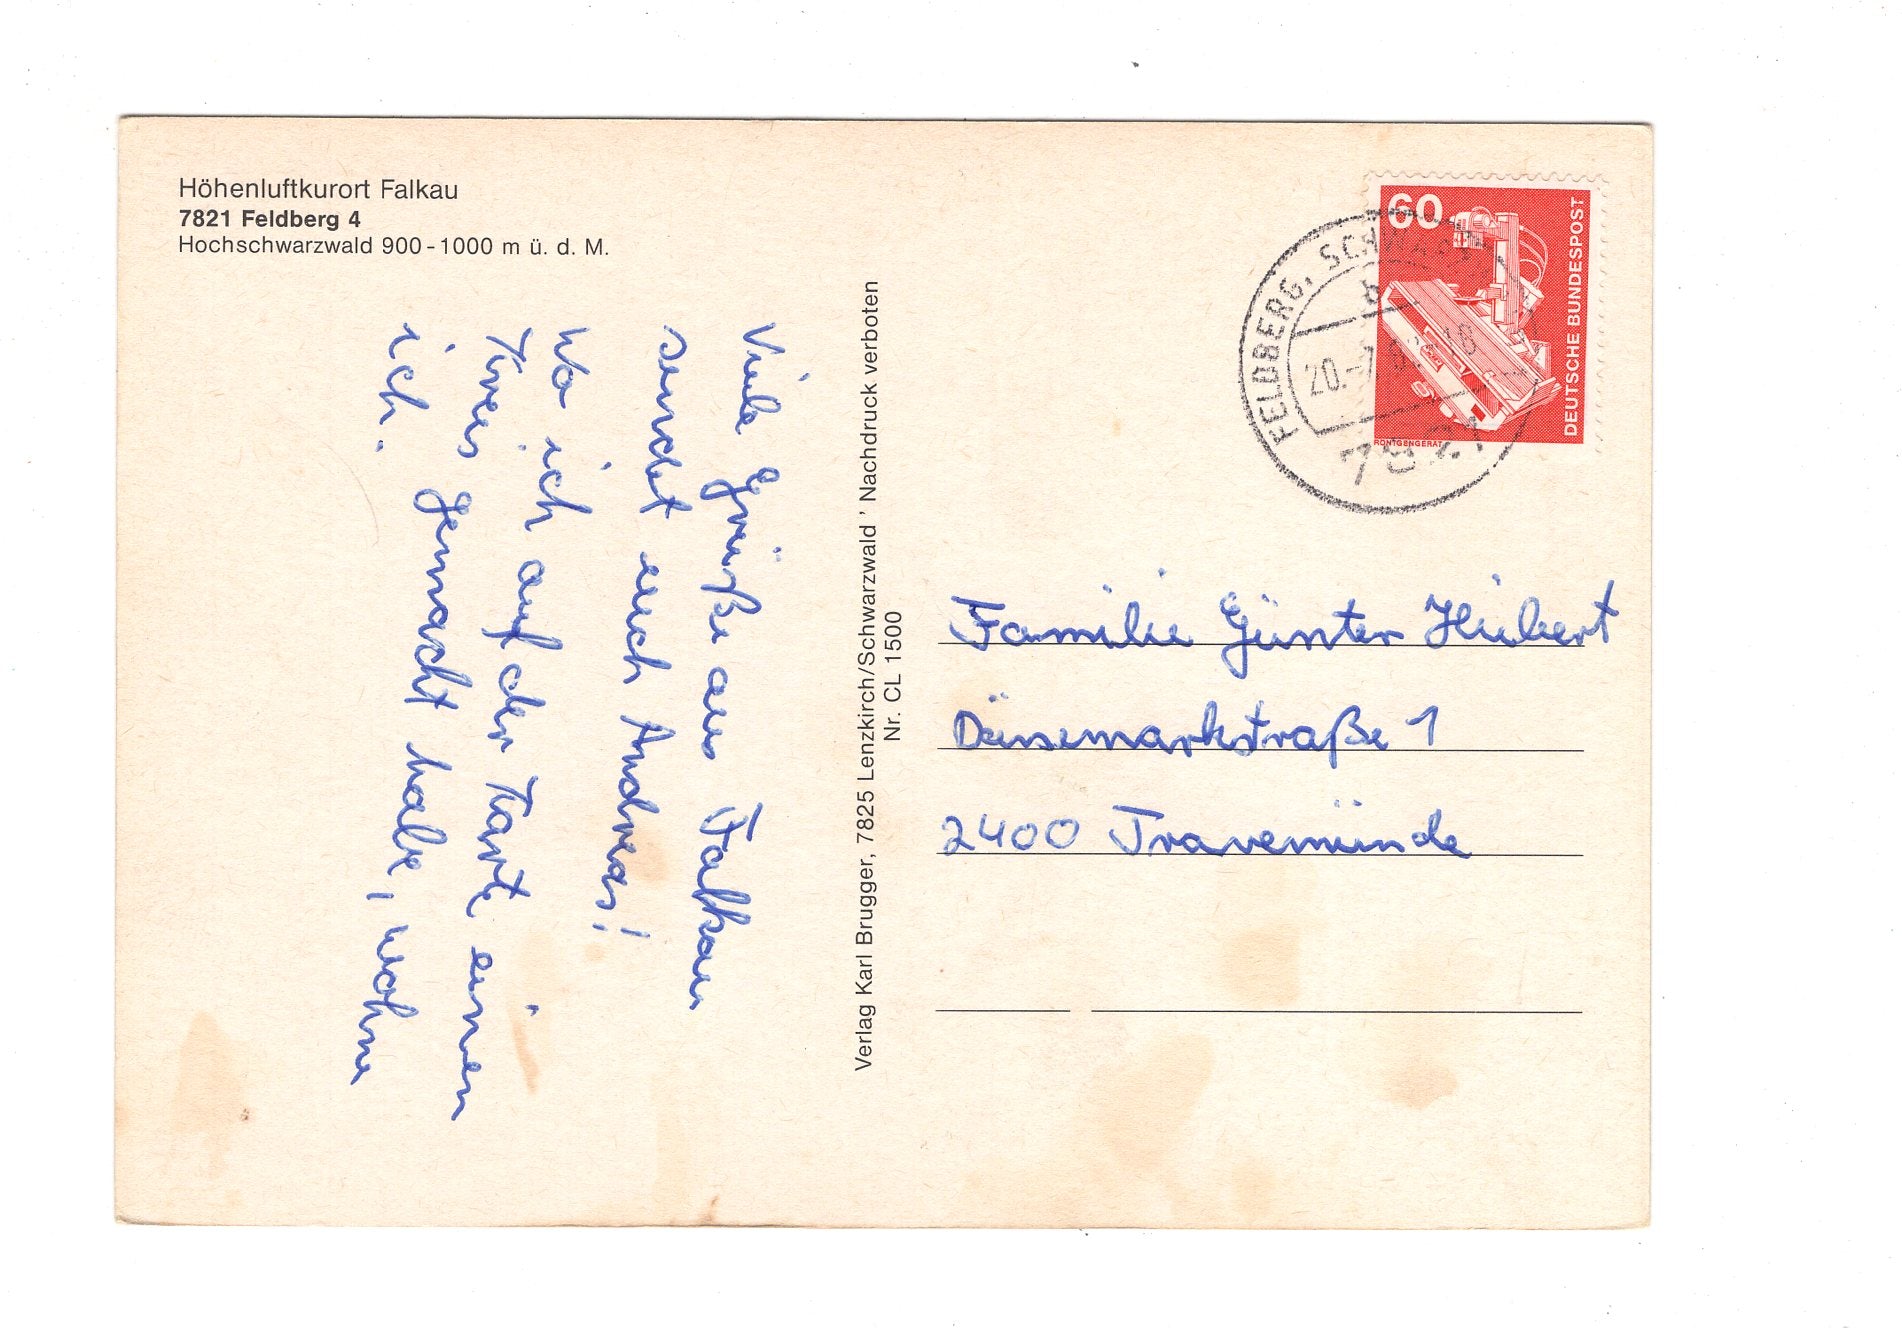 Höhenluftkurort Falkau
7821 Feldberg 4
Hochschwarzwald 900-1000 m ü. d. M.
Viele Grüße aus Falkau
sendet euch Andreas!
Wo ich auf der Karte einen
Kreis gemacht habe, wohne
ich.
Verlag Karl Brugger, 7825 Lenzkirch/Schwarzwald ' Nachdruck verboten
Nr. CL 1500
60
DEUTSCHE BUNDESPOST
RÖNTGENGERÄT
FELDBERG, SCHWARZW
b
20.-7
7821
Familie Günter Hubert
Dänemarkstraße 1
2400 Travemünde